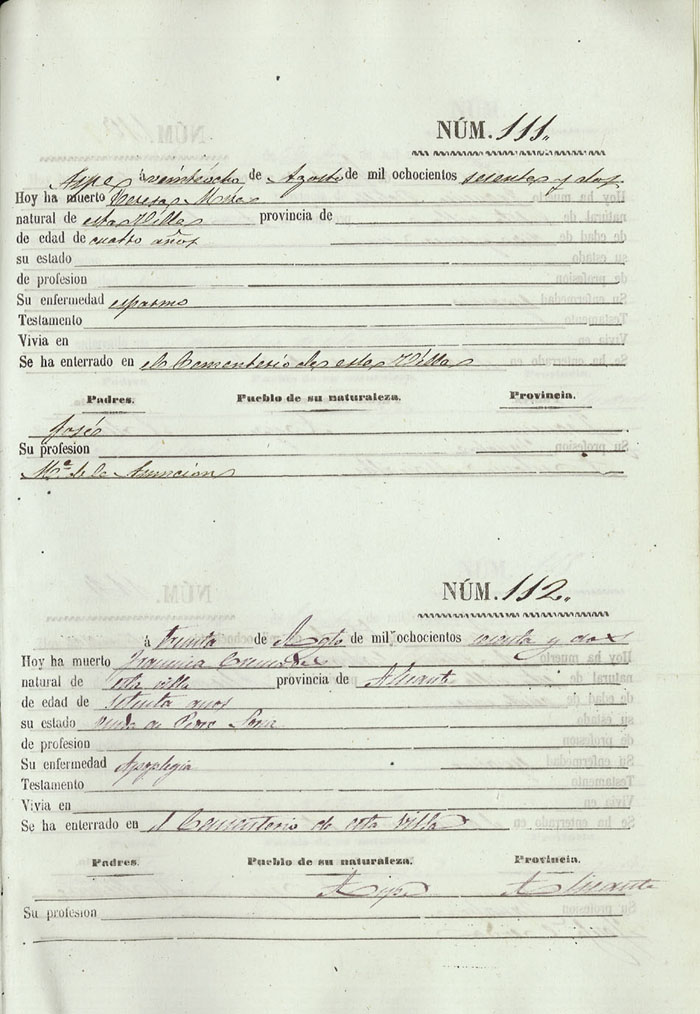 NÚM. 111.
Aspe á veinteocho de Agosto de mil ochocientos sesenta y dos
Hoy ha muerto Teresa
natural de esta Villa provincia de
de edad de cuatro años
su estado
de profesion
Su enfermedad espasmo
Testamento
Vivia en
Se ha enterrado en el Cementerio de esta Villa
Padres. Pueblo de su naturaleza. Provincia.
José
Su profesion
Mª de la Asuncion
NÚM. 112.
á treinta de Agto de mil ochocientos sesenta y dos
Hoy ha muerto Francisca
natural de esta villa provincia de Alicante
de edad de setenta años
su estado viuda de
de profesion
Su enfermedad Apoplegia
Testamento
Vivia en
Se ha enterrado en el Cementerio de esta Villa
Padres. Pueblo de su naturaleza. Provincia.
Aspe Alicante
Su profesion